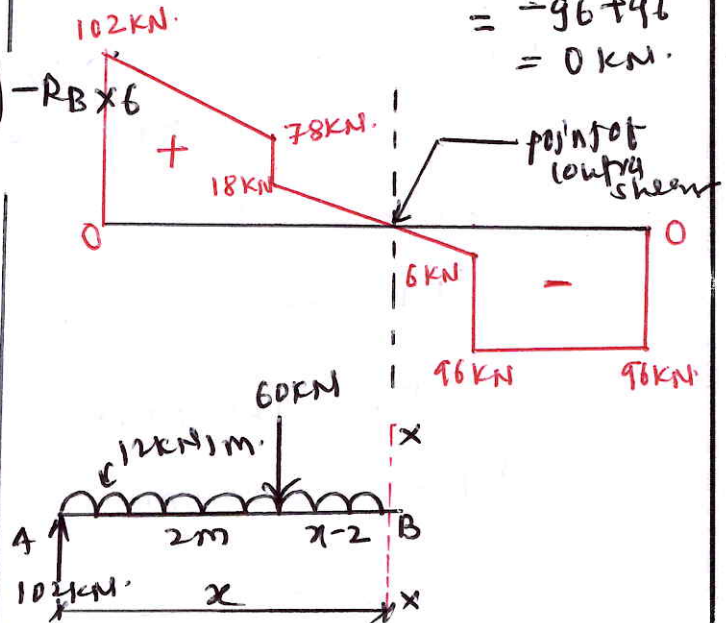 102KN.
= -96+96
= 0 KN.
) -RB×6
+
78KN.
18KN
point of
contra
shear
0
0
6KN
-
96KN
96KN.
60KN
12KN/m.
x
A
2m
x-2
B
102KN.
x
x